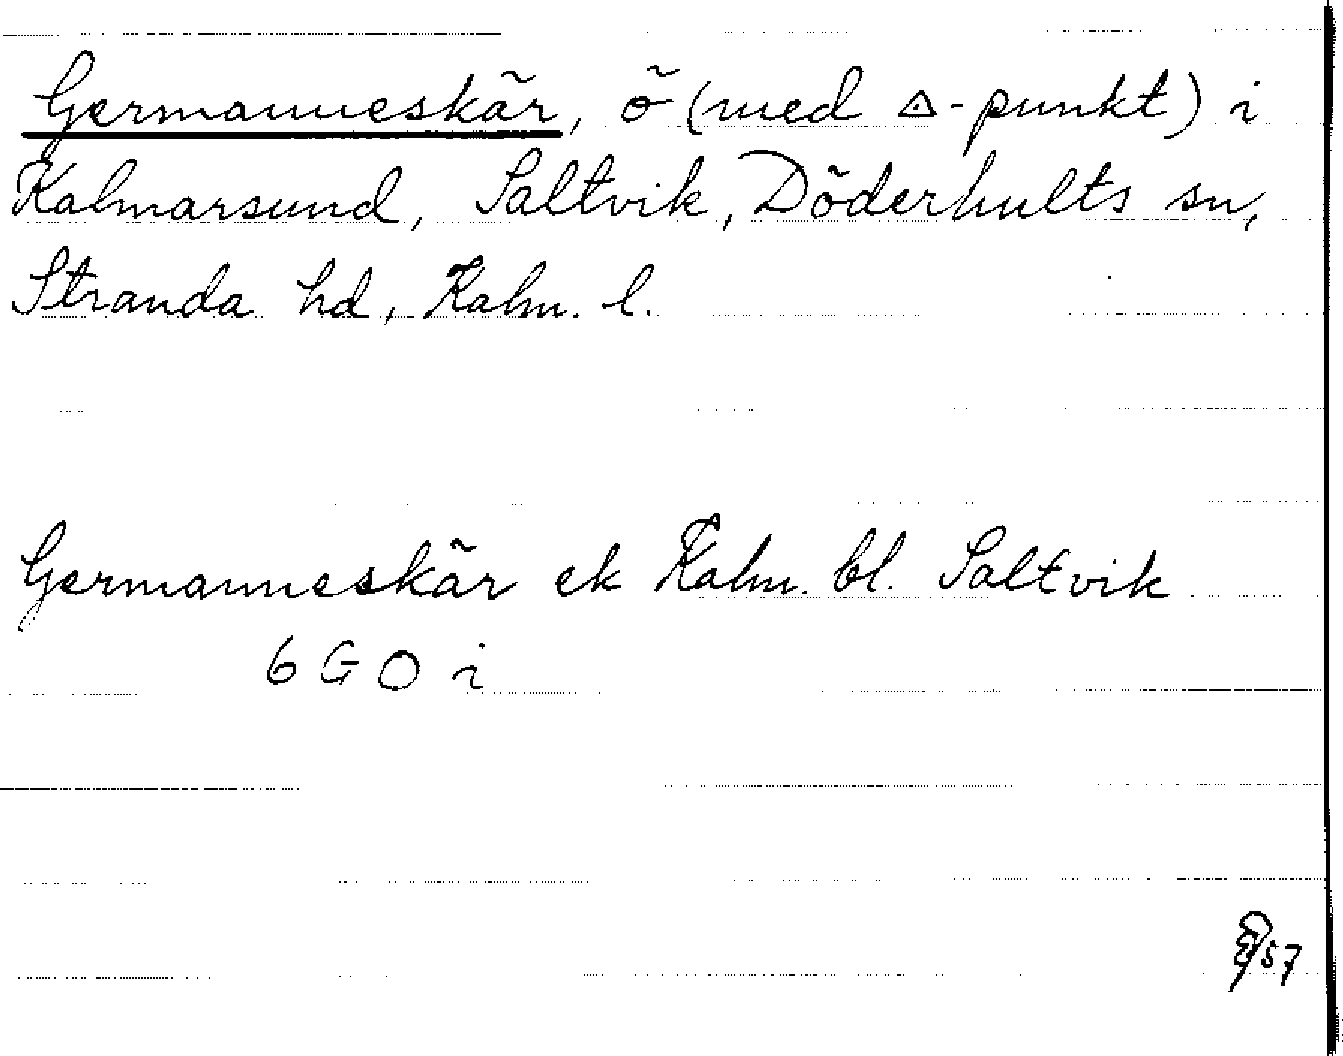 Germanneskär, ö (med △-punkt) i
Kalmarsund, Saltvik, Döderhults sn,
Stranda hd, Kalm. l.
Germanneskär ek Kalm. bl. Saltvik
6 G O i
57